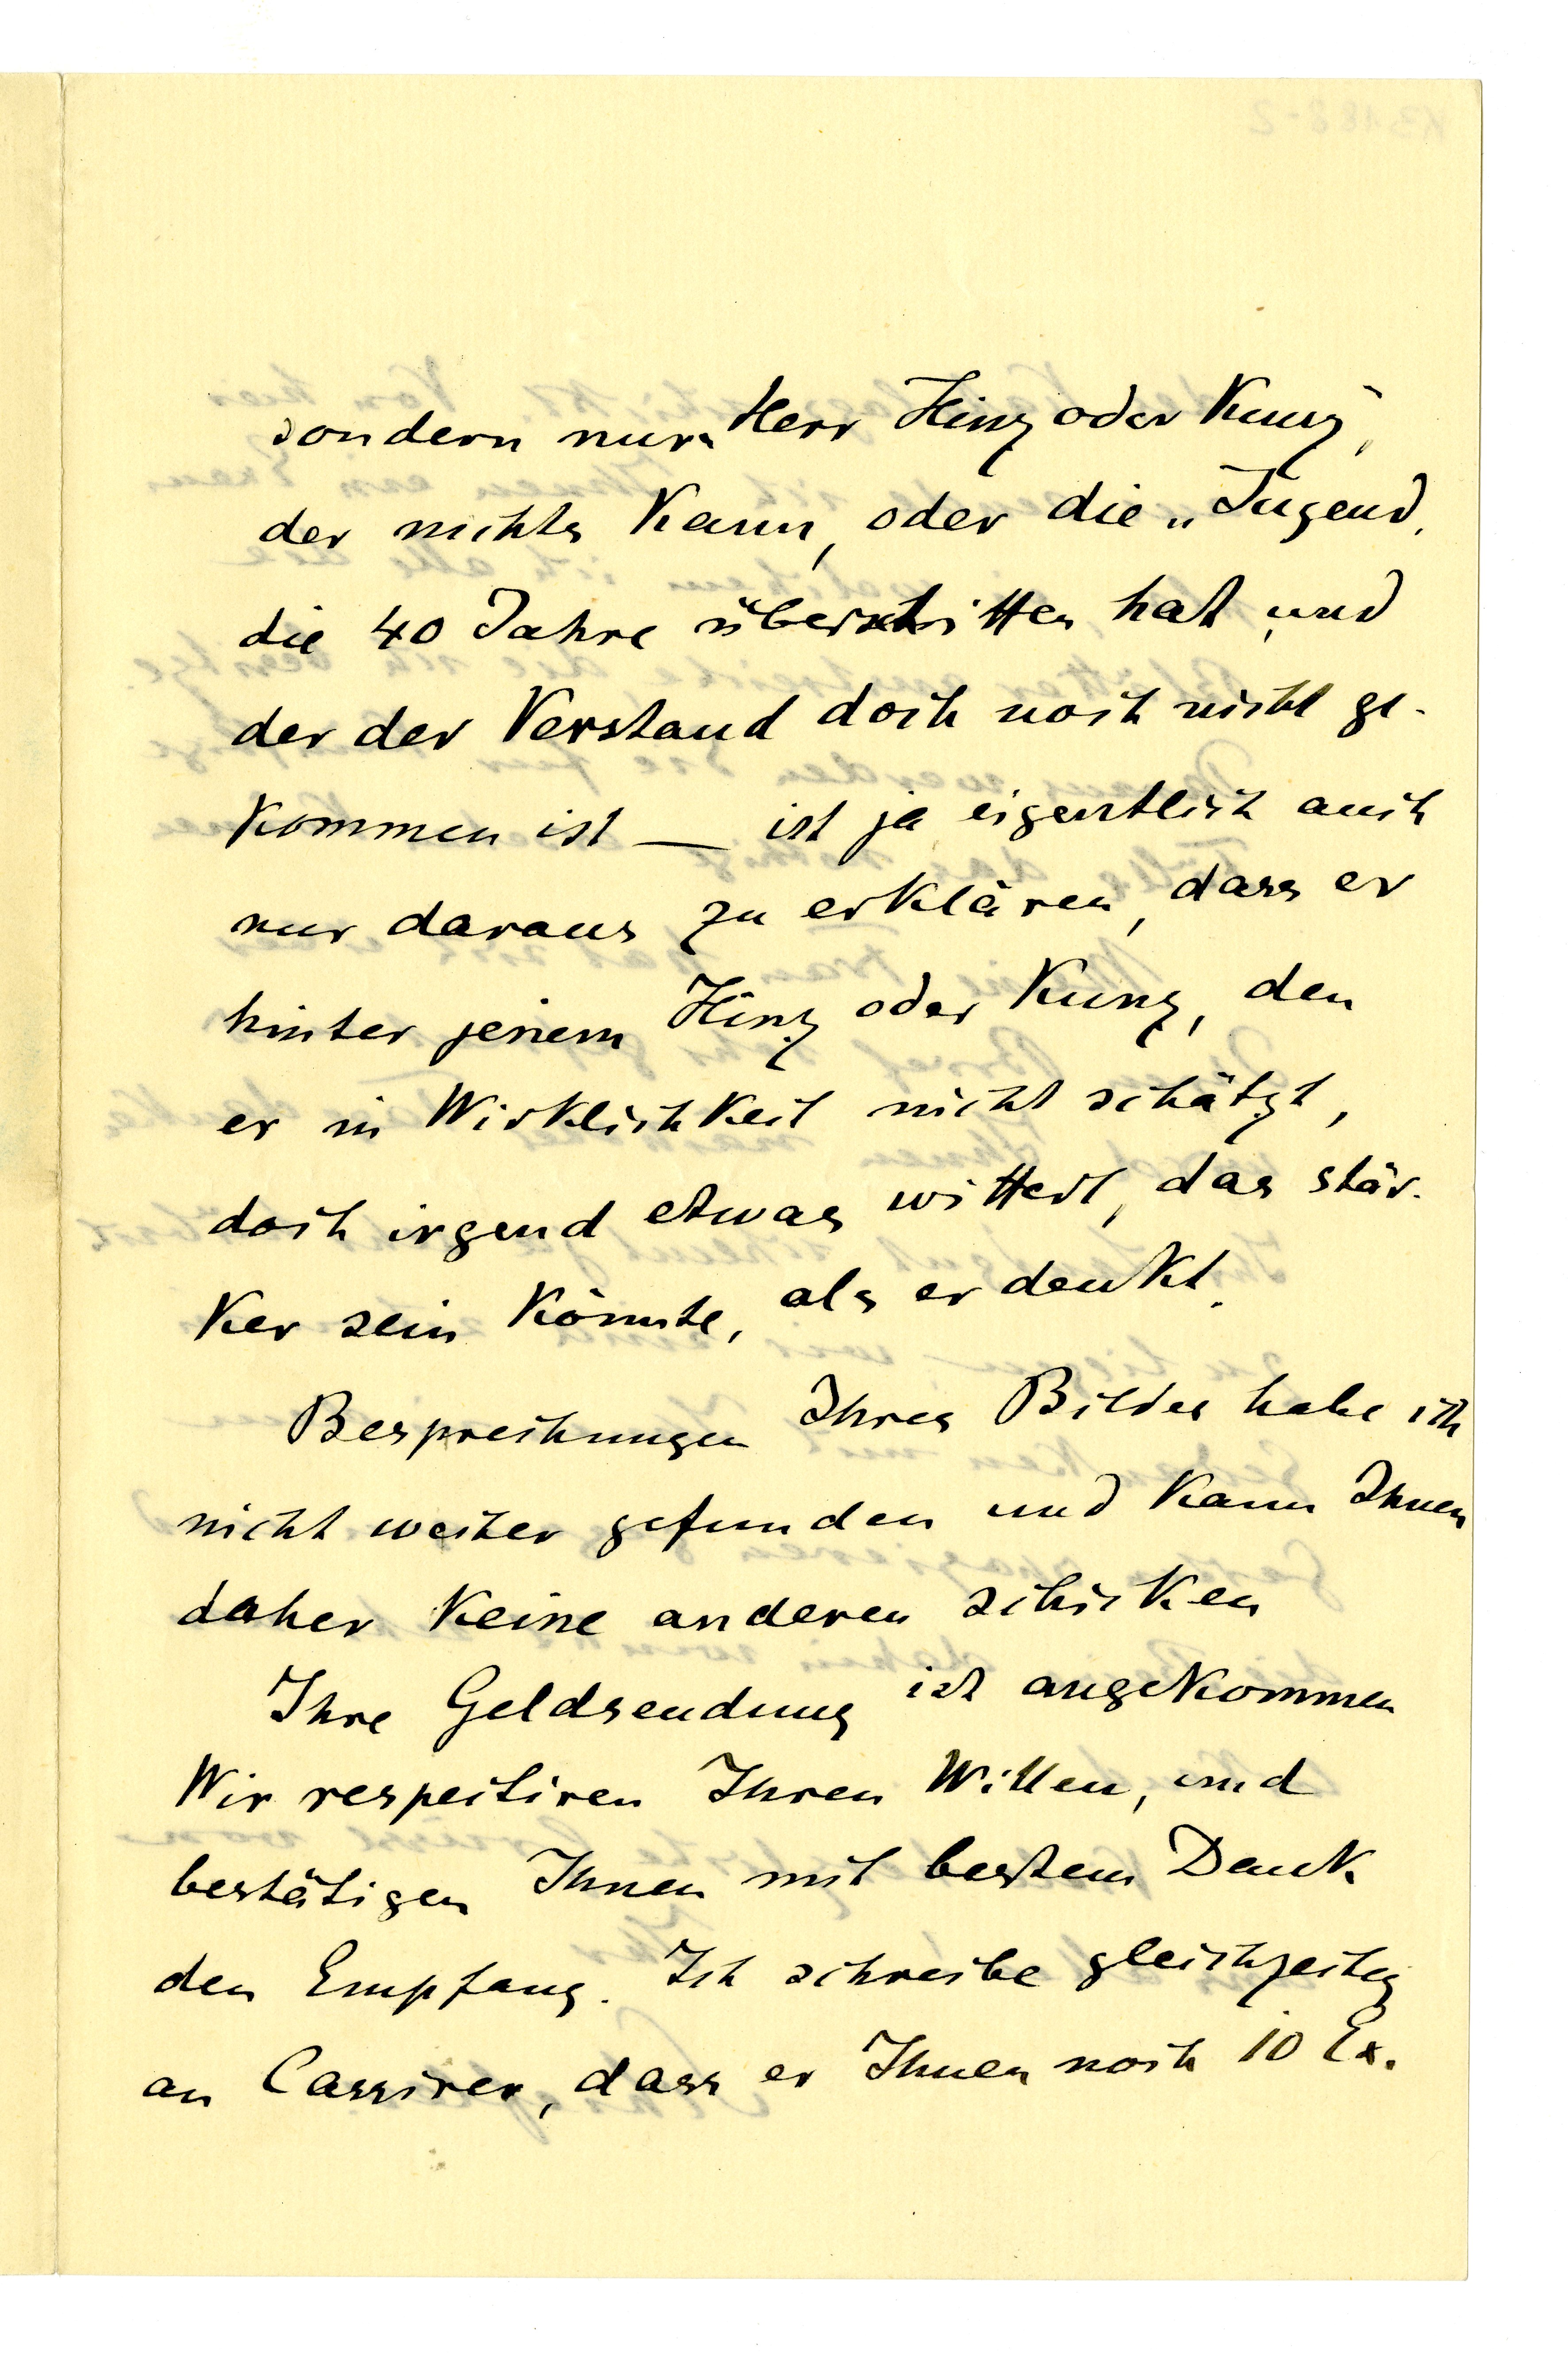 sondern nur „Herr Hinz oder Kunz,
der nichts kann, oder die „Jugend,
die 40 Jahre überschritten hat und
der der Verstand doch noch nicht ge-
kommen ist — ist ja eigentlich auch
nur daraus zu erklären, dass er
hinter jenem Hinz oder Kunz, den
er in Wirklichkeit nicht schätzt,
doch irgend etwas wittert, das stär-
ker sein könnte, als er denkt.
Besprechungen Ihres Bildes habe ich
nicht weiter gefunden und kann Ihnen
daher keine anderen schicken
Ihre Geldsendung ist angekommen
Wir respectiren Ihren Willen, und
bestätigen Ihnen mit bestem Dank
den Empfang. Ich schreibe gleichzeitig
an Cassirer, dass er Ihnen noch 10 Ex.